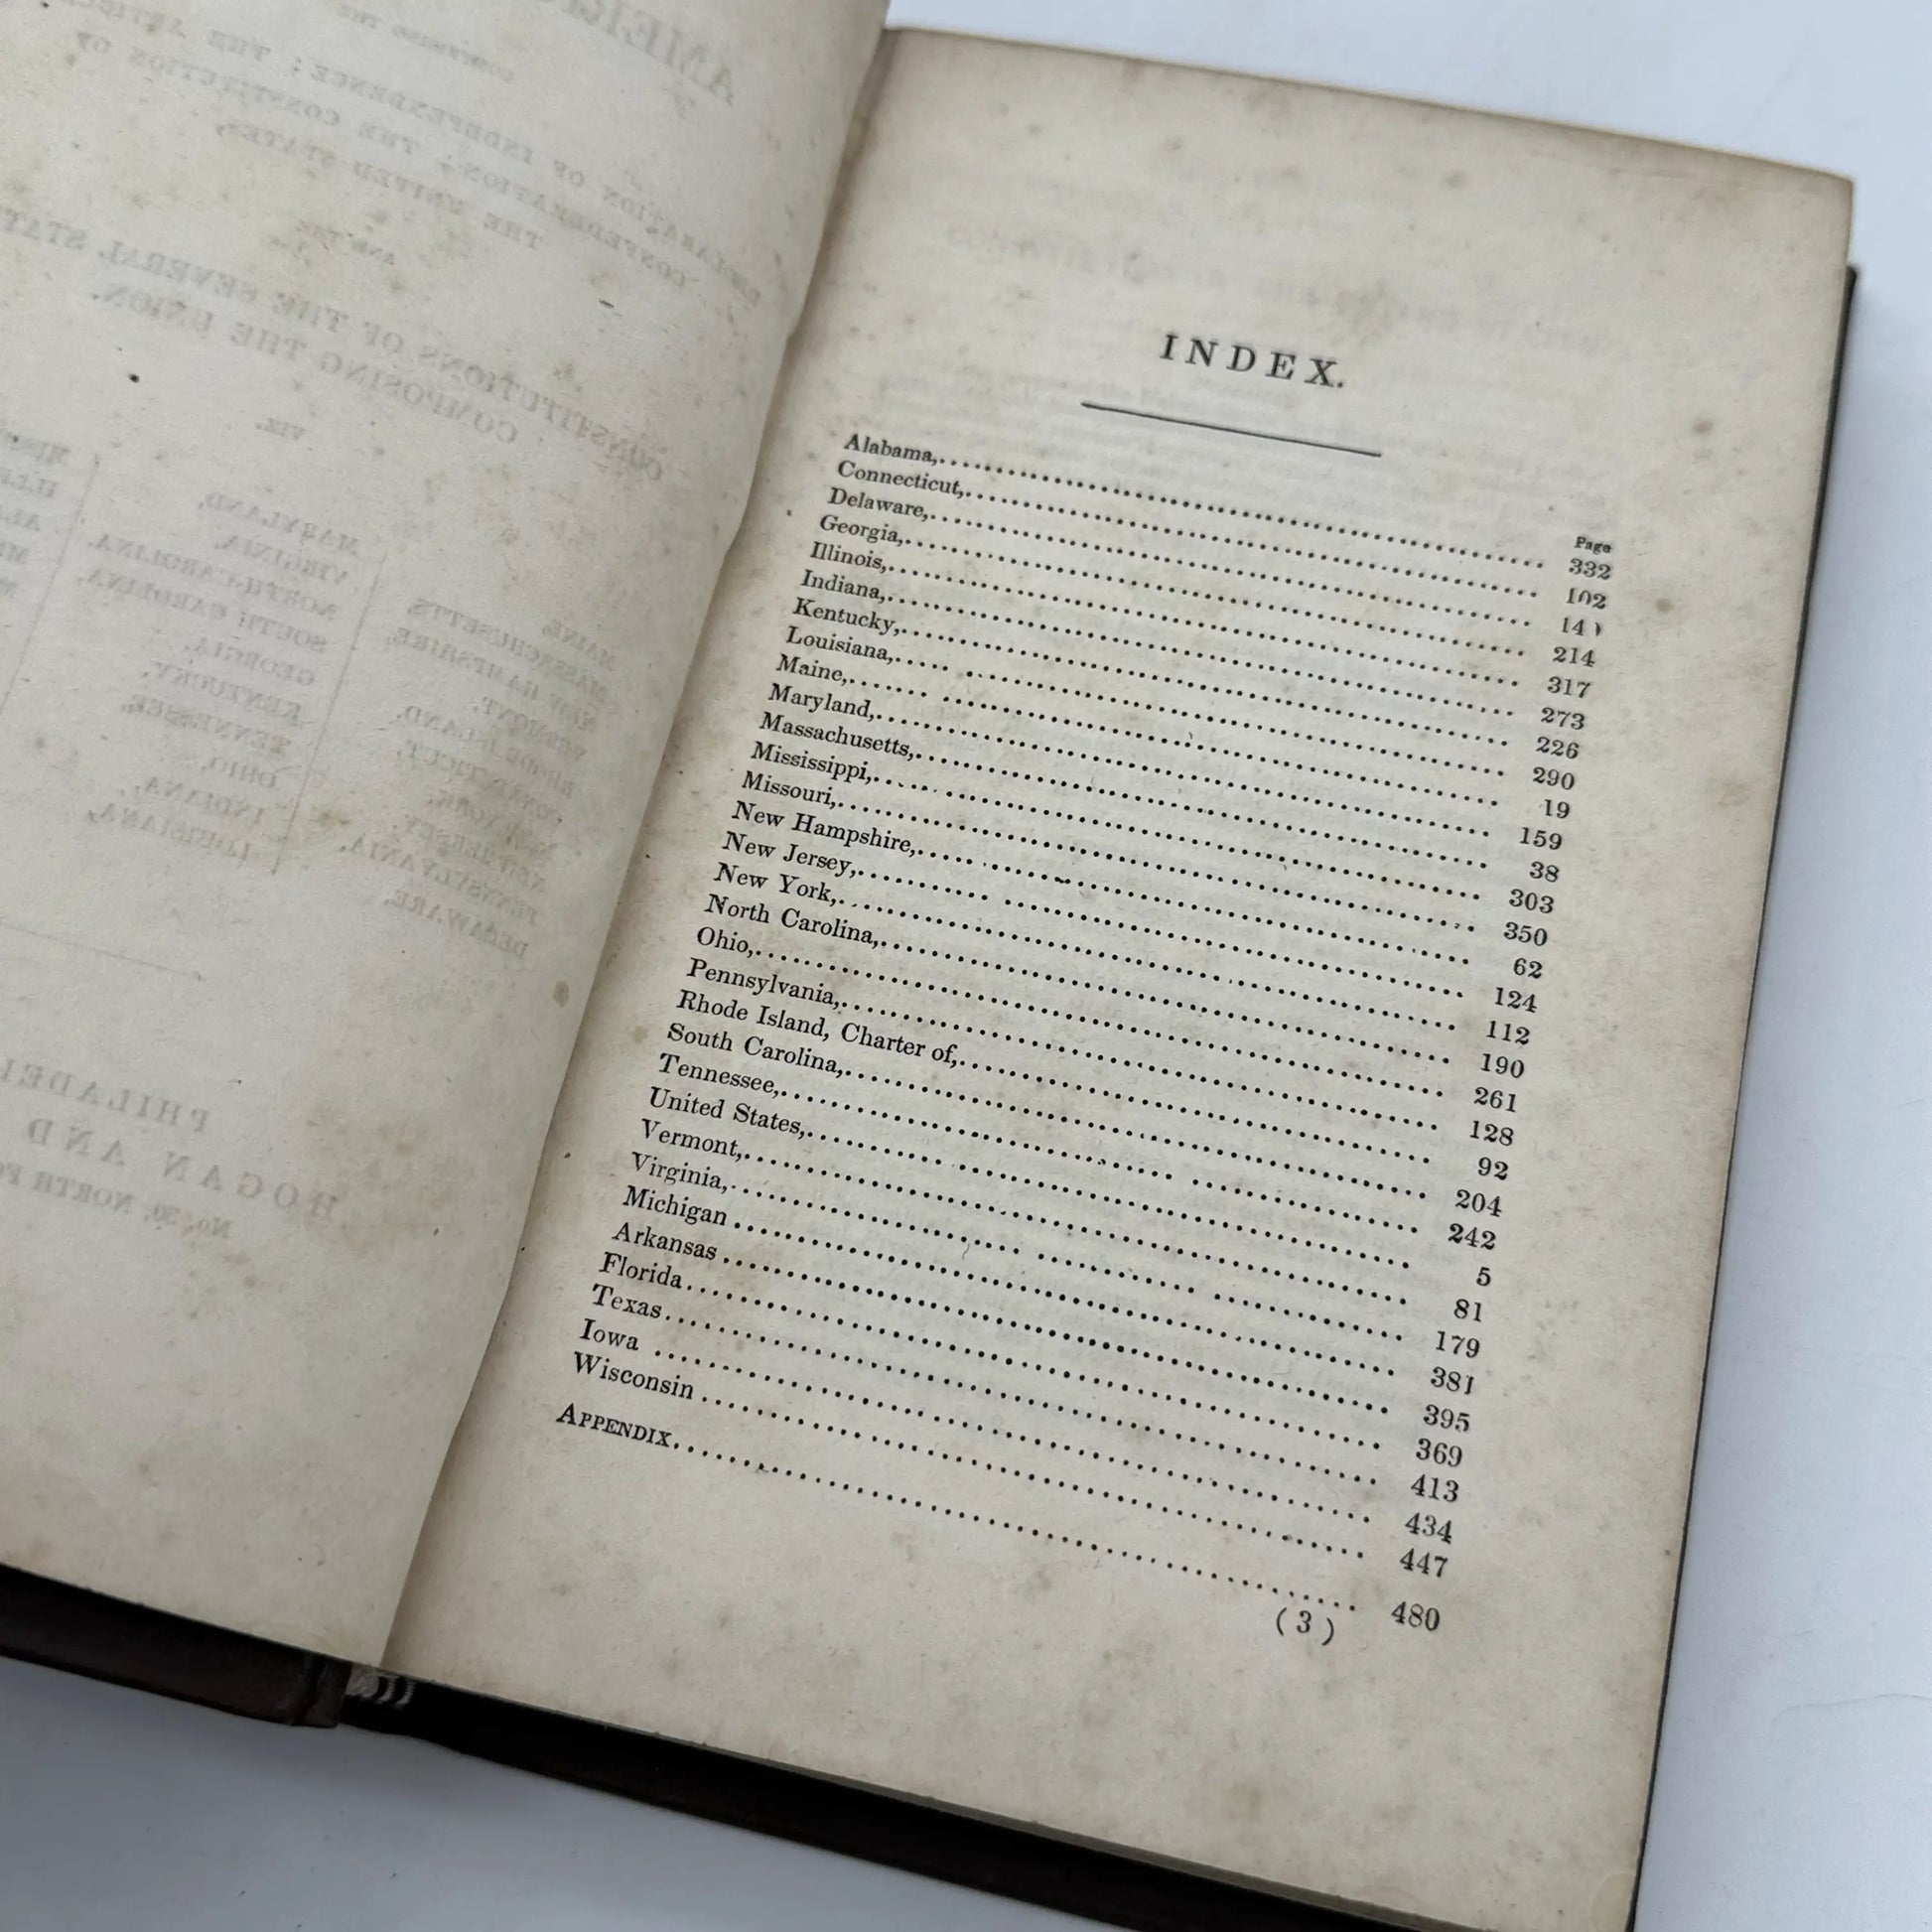 INDEX.
Page
Alabama, 332
Connecticut, 102
Delaware,
Georgia, 214
Illinois, 317
Indiana, 273
Kentucky, 226
Louisiana, 290
Maine, 19
Maryland, 159
Massachusetts, 38
Mississippi, 303
Missouri, 350
New Hampshire, 62
New Jersey, 124
New York, 112
North Carolina, 190
Ohio, 261
Pennsylvania, 128
Rhode Island, Charter of, 92
South Carolina, 204
Tennessee, 242
United States, 5
Vermont, 81
Virginia, 179
Michigan 381
Arkansas 395
Florida 369
Texas 413
Iowa 434
Wisconsin 447
APPENDIX 480
(3)